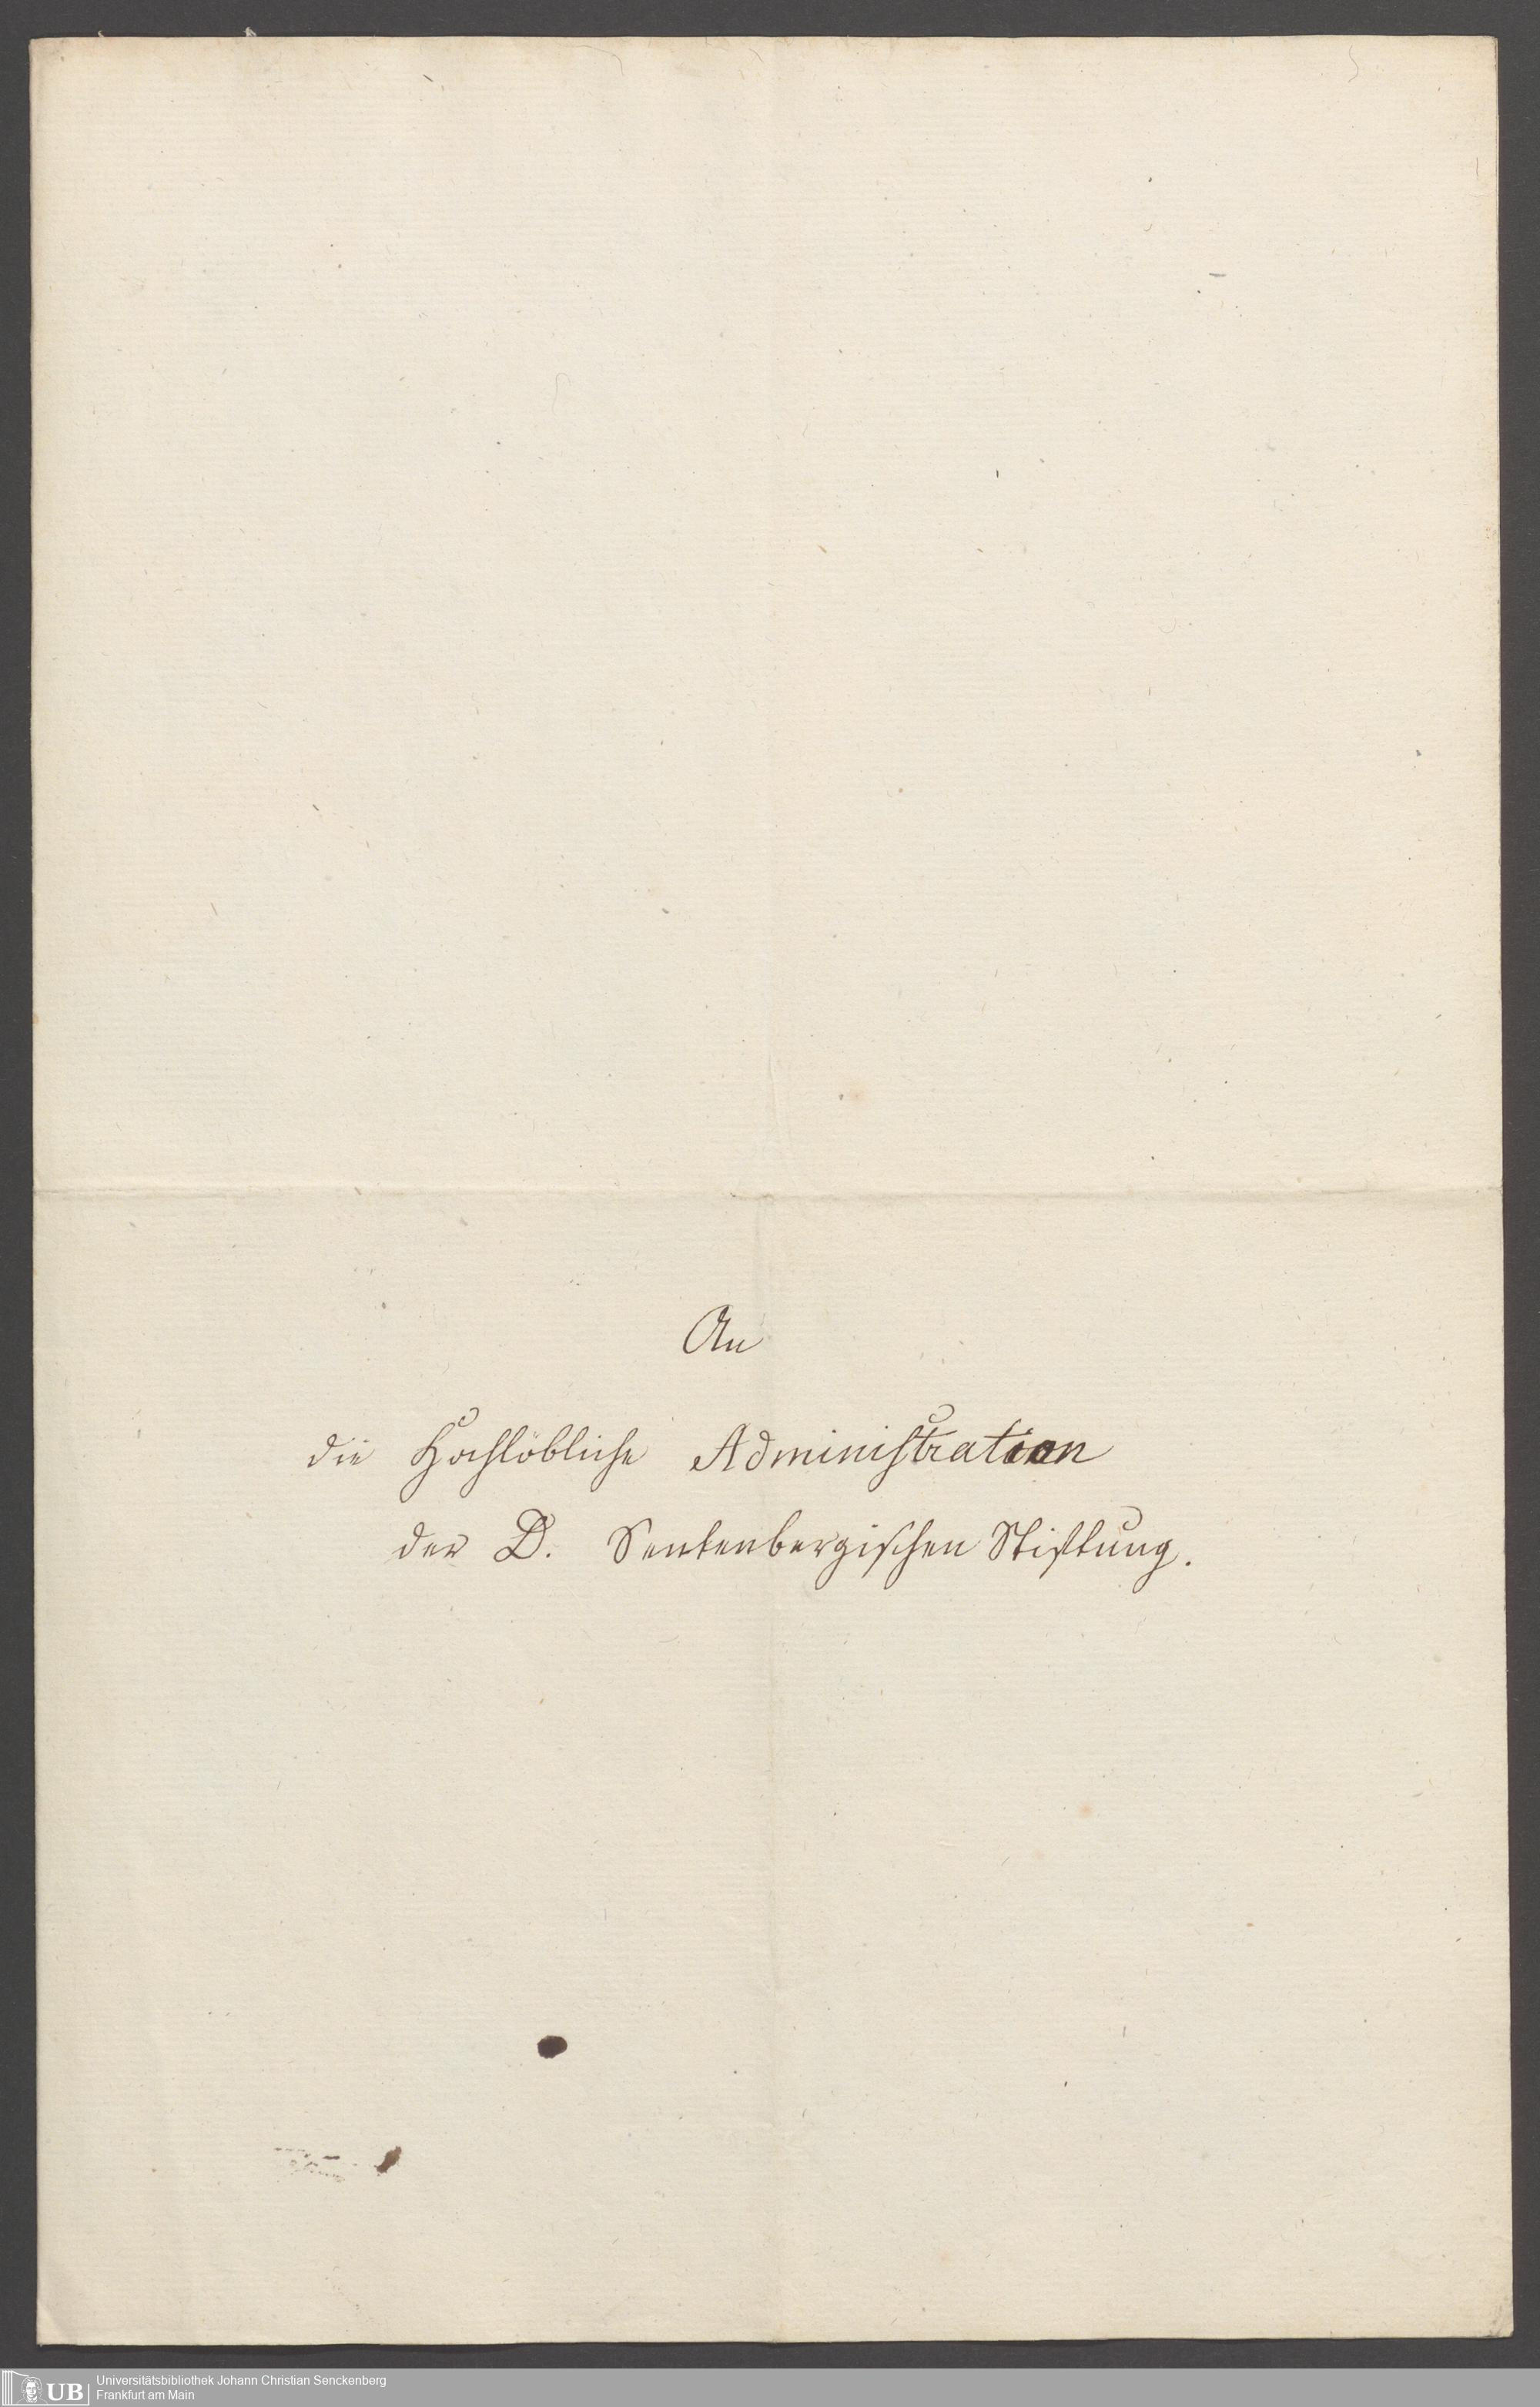 An
die Hochlöbliche Administration
der D. Senkenbergischen Stiftung.
UB
Universitätsbibliothek Johann Christian Senckenberg
Frankfurt am Main